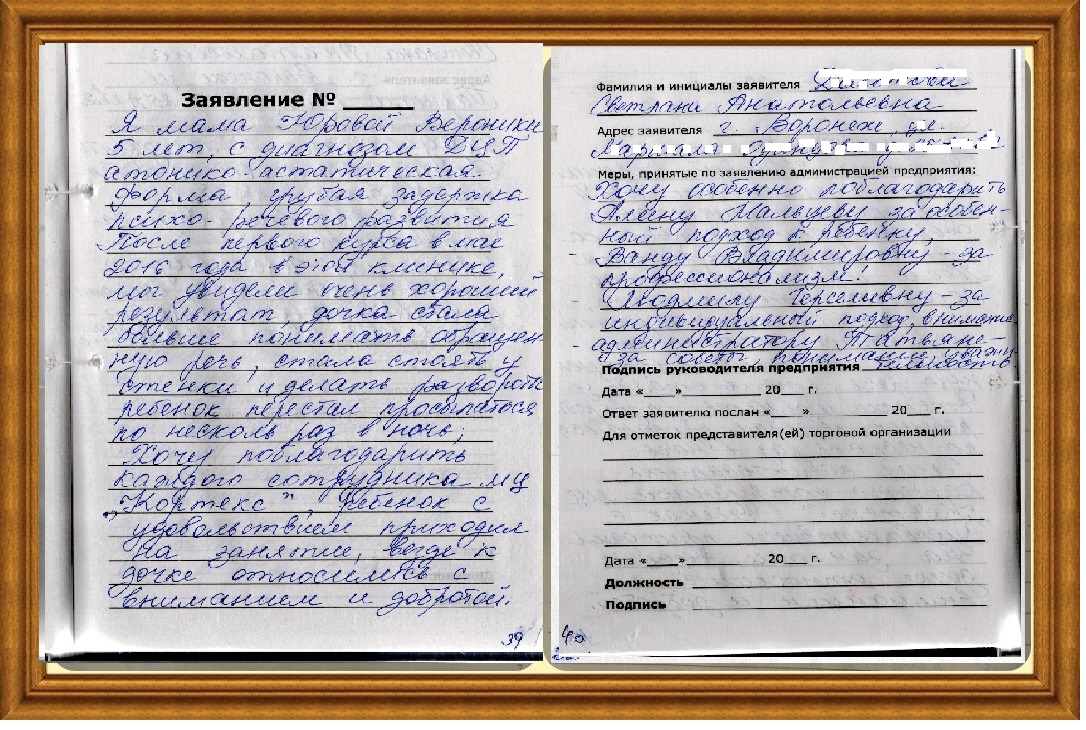 Заявление № ______
Я мама Юровой Вероники
5 лет, с диагнозом ДЦП
атонико-астатическая
форма, грубая задержка
психо-речевого развития
После первого курса в мае
2016 года в этой клинике,
мы увидели очень хороший
результат дочка стала
больше понимать обращен-
ную речь, стала стоять у
стенки и делать развороты
ребенок перестал просыпаться
по несколь раз в ночь;
Хочу поблагодарить
каждого сотрудника МЦ
„Кортекс", ребенок с
удовольствием приходил
на занятие, везде к
дочке относились с
вниманием и добротой.
39
Фамилия и инициалы заявителя
Светлана Анатольевна
Адрес заявителя г. Воронеж, ул.
Меры, принятые по заявлению администрацией предприятия:
Хочу особенно поблагодарить
Алёну Мальцеву за особен-
ный подход к ребенку,
- Ванду Владимировну - за
профессионализм!
- Людмилу Сергеевну - за
индивидуальный подход,
- администратору Татьяне -
за советы, понимание,
Подпись руководителя предприятия
Дата «____»____________ 20___ г.
Ответ заявителю послан «____»____________ 20___ г.
Для отметок представителя(ей) торговой организации
Дата «____»____________ 20___ г.
Должность
Подпись
40